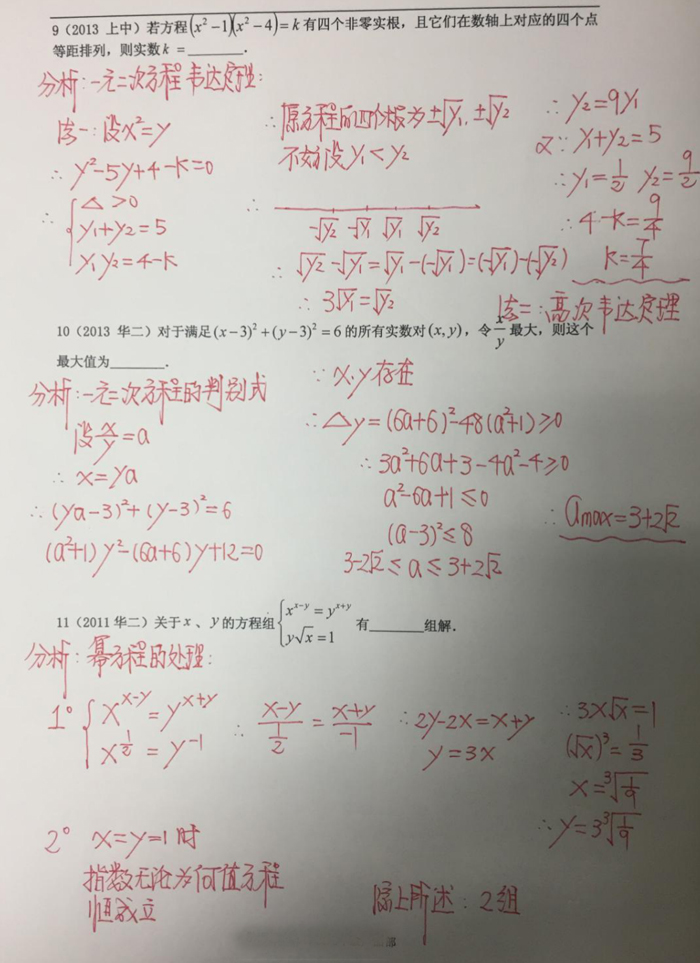 9(2013 上中)若方程(x²-1)(x²-4)=k有四个非零实根,且它们在数轴上对应的四个点
等距排列,则实数k=______.
分析:一元二次方程韦达定理:
法一:设x²=y
∴ y²-5y+4-k=0
∴ { △>0
y₁+y₂=5
y₁y₂=4-k
∴ 原方程的四个根为±√y₁,±√y₂
不妨设 y₁<y₂
∴
-√y₂ -√y₁ √y₁ √y₂
∴ √y₂-√y₁=√y₁-(-√y₁)=(-√y₁)-(-√y₂)
∴ 3√y₁=√y₂
∴ y₂=9y₁
又∵ y₁+y₂=5
∴ y₁=1/2 y₂=9/2
∴ 4-k=9/4
k=7/4
法二:高次韦达定理
10(2013 华二)对于满足(x-3)²+(y-3)²=6的所有实数对(x,y),令x/y最大,则这个
最大值为______.
分析:一元二次方程的判别式
设x/y=a
∴ x=ya
∴ (ya-3)²+(y-3)²=6
(a²+1)y²-(6a+6)y+12=0
∵ x.y存在
∴ △y=(6a+6)²-48(a²+1)≥0
∴ 3a²+6a+3-4a²-4≥0
a²-6a+1≤0
(a-3)²≤8
3-2√2≤a≤3+2√2
∴ amax=3+2√2
11(2011 华二)关于x、y的方程组{ x^(x-y)=y^(x+y)
y√x=1 有______组解.
分析:幂方程的处理:
1° { x^(x-y)=y^(x+y)
x^(1/2)=y^(-1)
∴ (x-y)/(1/2)=(x+y)/(-1)
∴ 2y-2x=x+y
y=3x
∴ 3x√x=1
(√x)³=1/3
x=³√(1/9)
∴ y=3³√(1/9)
2° x=y=1时
指数无论为何值方程
恒成立
综上所述:2组
部